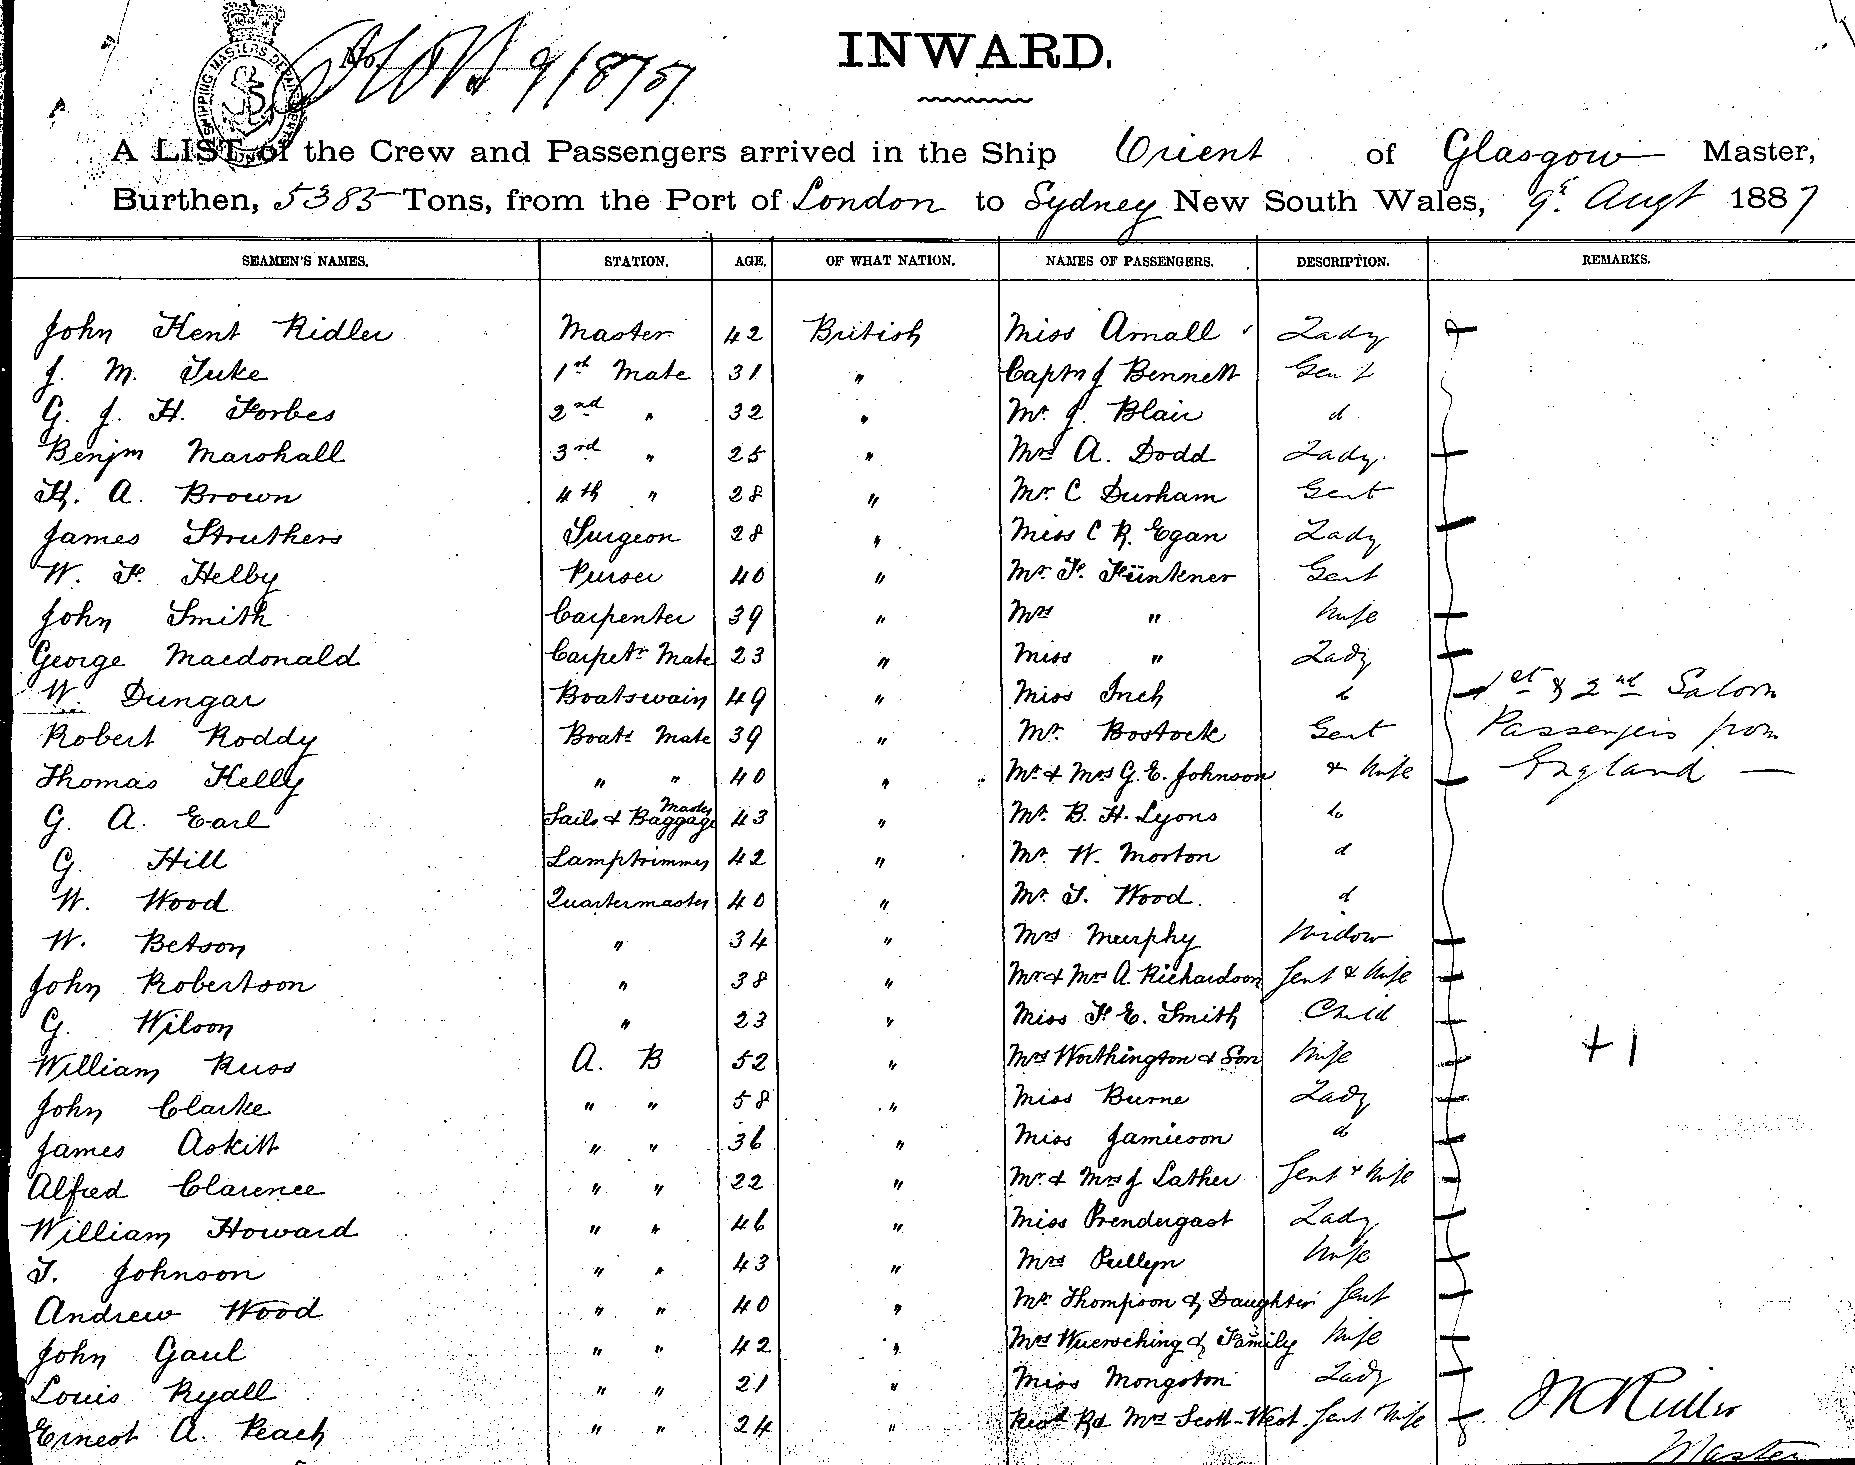 SHIPPING MASTERS DEPARTMENT
9/8/87
INWARD.
A LIST of the Crew and Passengers arrived in the Ship Orient of Glasgow Master,
Burthen, 5385 Tons, from the Port of London to Sydney New South Wales, 9th Augt 1887
SEAMEN'S NAMES. STATION. AGE. OF WHAT NATION. NAMES OF PASSENGERS. DESCRIPTION. REMARKS.
John Kent Ridler Master 42 British Miss Arnall Lady
J. M. Tuke 1st Mate 31 " Captn J Bennett Gent
G. J. H. Forbes 2nd " 32 " Mr. J. Blair d
Benjm Marshall 3rd " 25 " Mrs A. Dodd Lady
H. A. Brown 4th " 28 " Mr. C Durham Gent
James Struthers Surgeon 28 " Miss C R. Egan Lady
W. F. Helby Purser 40 " Mr. F. Fünkner Gent
John Smith Carpenter 39 " Mrs " Wife
George Macdonald Carpetr Mate 23 " Miss " Lady
W. Dungar Boatswain 49 " Miss Inch d 1st & 2nd Saloon
Robert Roddy Boats Mate 39 " Mr. Bostock Gent Passengers from
Thomas Kelly " " 40 " Mr & Mrs G. E. Johnson & Wife England —
G. A. Earl Sails & Baggage Master 43 " Mr. B. H. Lyons do
G. Hill Lamptrimmer 42 " Mr. W. Morton d
W. Wood Quartermaster 40 " Mr. T. Wood. d
W. Betson " 34 " Mrs Murphy Widow
John Robertson " 38 " Mr & Mrs A. Richardson Gent & Wife
G. Wilson " 23 " Miss F. E. Smith Child
William Russ A. B 52 " Mrs Worthington & Son Wife + 1
John Clarke " " 58 " Miss Burne Lady
James Askitt " " 36 " Miss Jamieson d
Alfred Clarence " " 22 " Mr & Mrs J Lather Gent & Wife
William Howard " " 46 " Miss Prendergast Lady
T. Johnson " " 43 " Mrs Pullyn Wife
Andrew Wood " " 40 " Mr. Thompson & Daughter Gent
John Gaul " " 42 " Mrs Wuersching & Family Wife
Louis Ryall " " 21 " Miss Mongston Lady
Ernest A. Peach " " 24 " Mrs Scott-West Gent Wife J K Ridler
Master